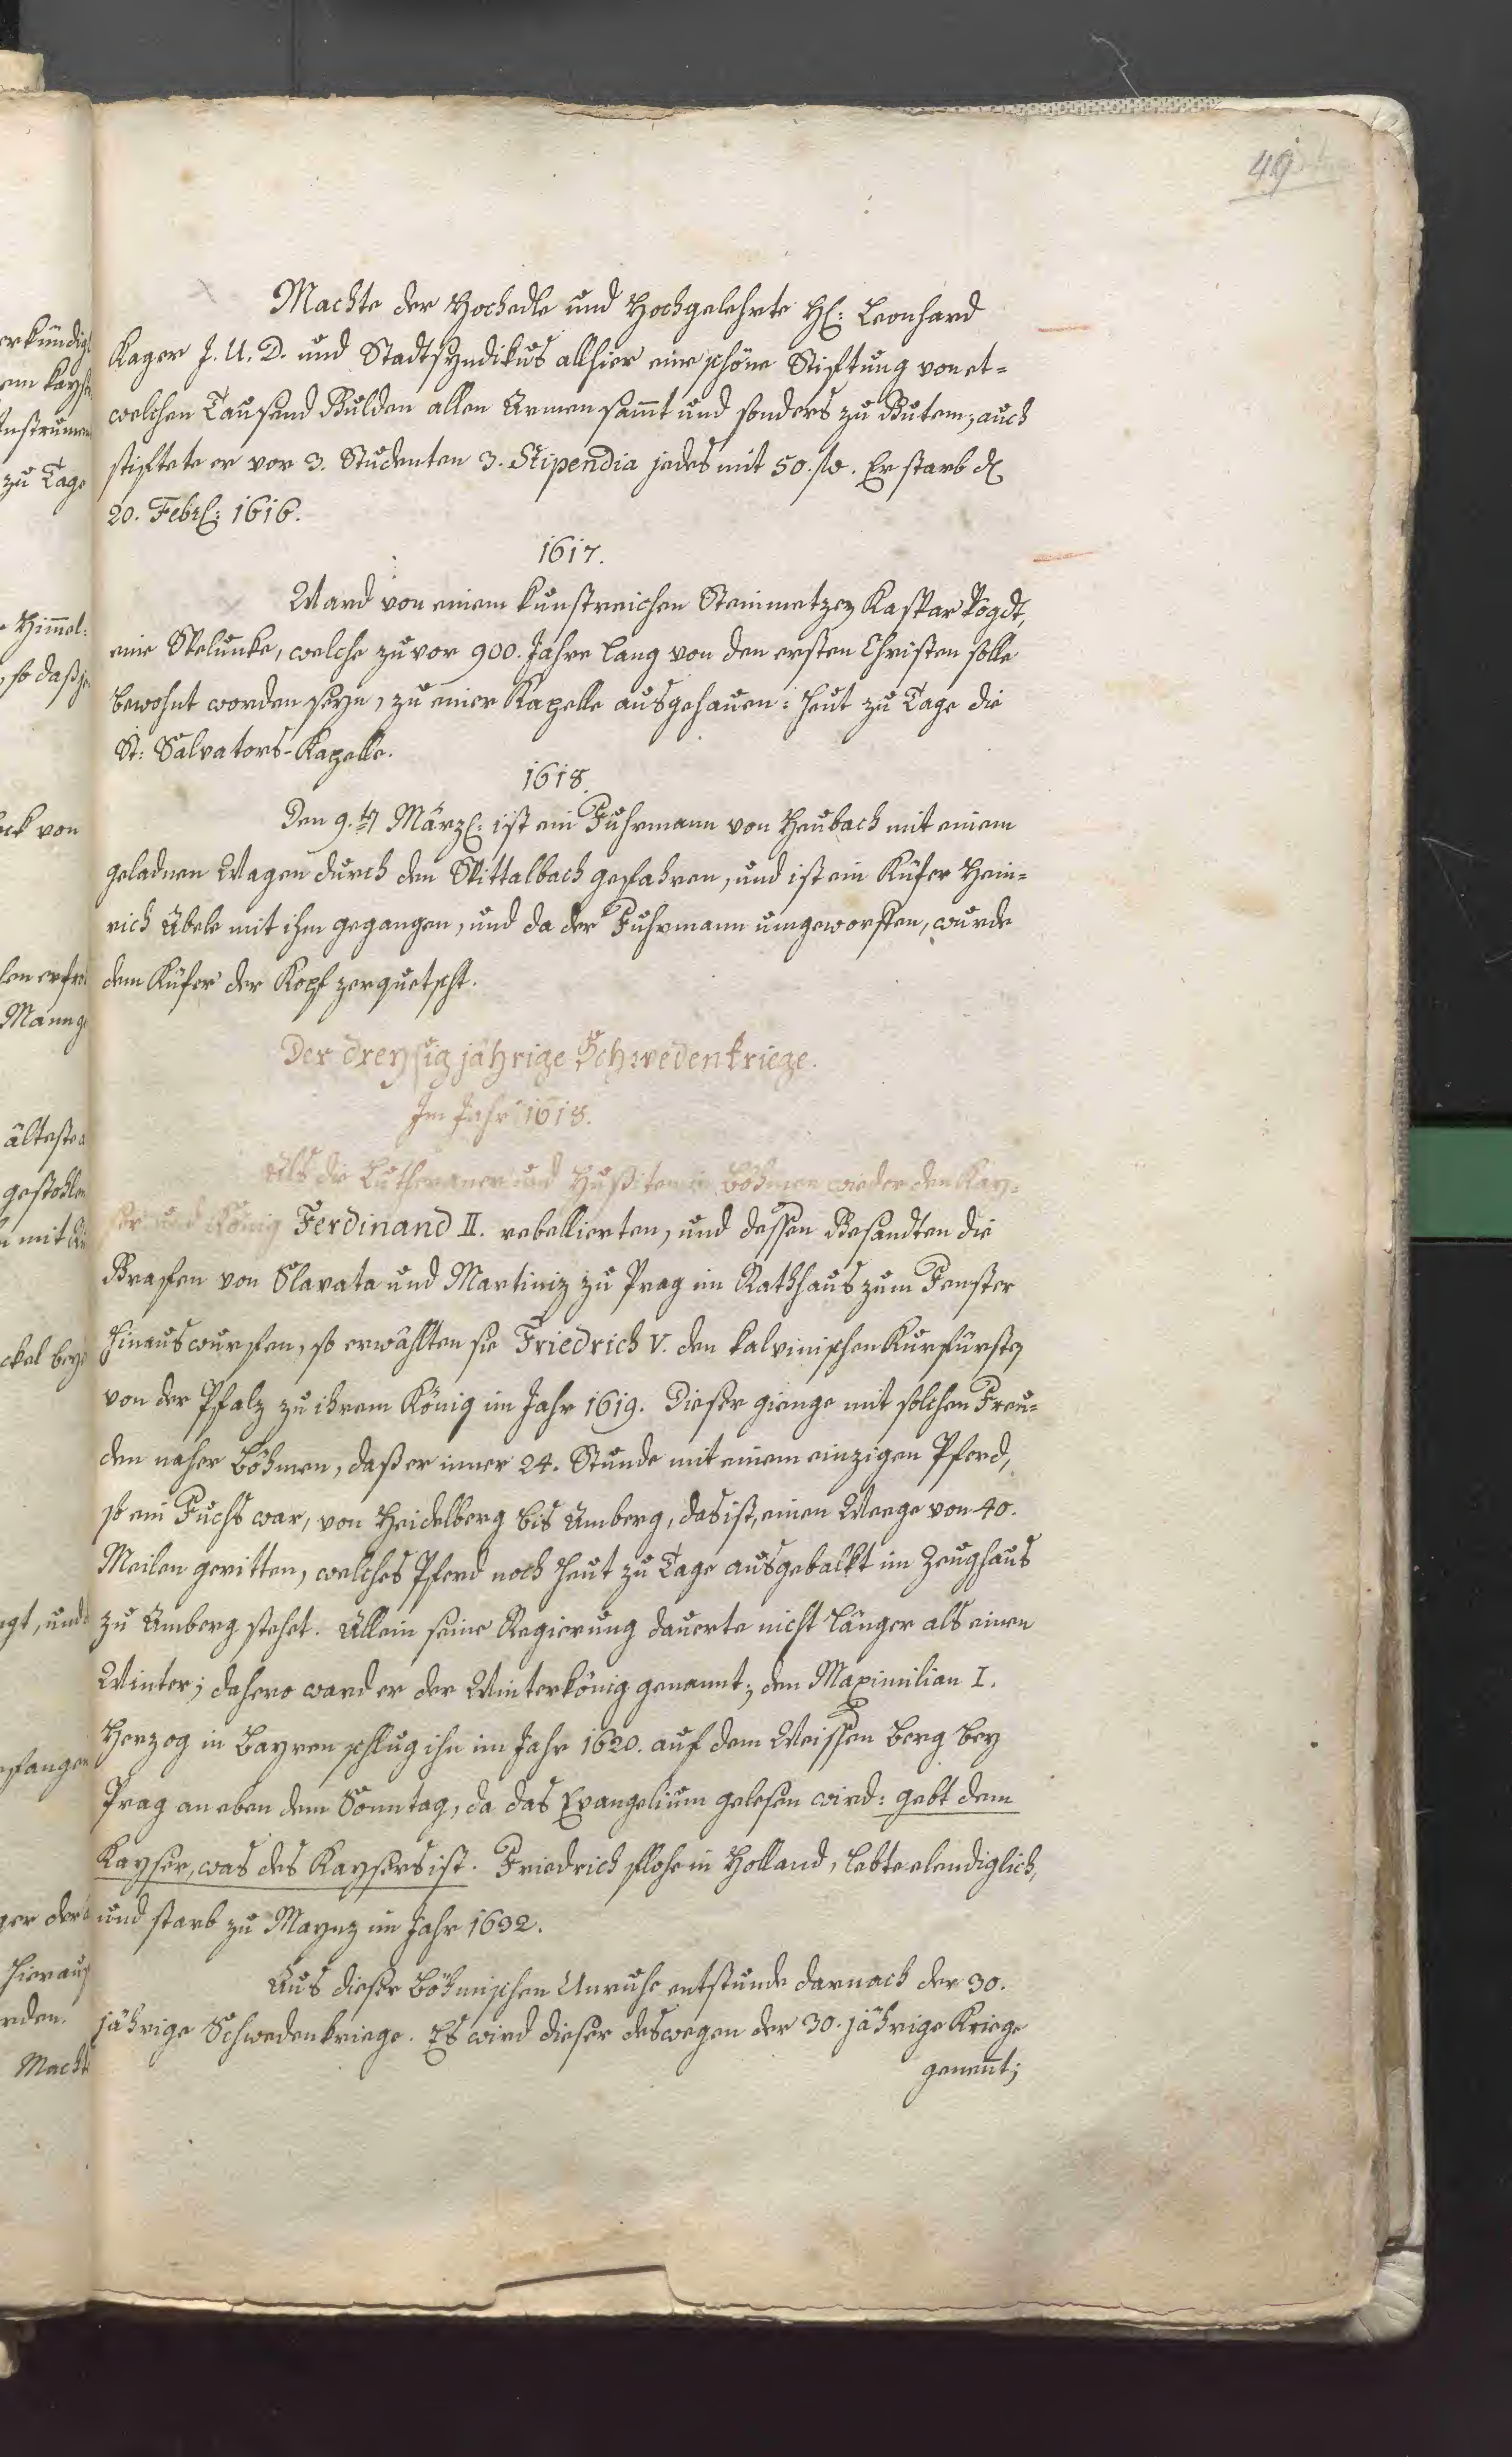 49
Machte der Hochedle und Hochgelehrte H: Leonhard
Kager J. U. D. und Stadtsyndikus allhier eine schöne Stiftung von et=
welchen Tausend Gulden allen Armen sam̅t und sonders zu Gutem; auch
stiftete er vor 3. Studenten 3. Stipendia jedes mit 50. fl. Er starb d
20. Febr: 1616.
1617.
Ward von einem kunstreichen Steinmetzen Kaspar Vogdt,
eine Spelunke, welche zuvor 900. Jahre lang von den ersten Christen solle
bewohnt worden seyn, zu einer Kapelle ausgehauen: heut zu Tage die
St: Salvators-Kapelle.
1618.
Den 9.ten März: ist ein Fuhrmann von Heubach mit einem
geladnen Wagen durch den Spittalbach gefahren, und ist ein Küfer Hein=
rich Übele mit ihm gegangen, und da der Fuhrmann umgeworffen, wurde
dem Küfer der Kopf zerquetscht.
Der dreysigjährige Schwedenkriege.
Im Jahr 1618.
Als die Lutheraner und Hußiten in Böhmen wieder den Kay=
ser und König Ferdinand II. rebellierten, und dessen Gesandten die
Grafen von Slavata und Martiniz zu Prag im Rathhaus zum Fenster
hinauswurfen, so erwählten sie Friedrich V. den kalvinischen Kurfürsten
von der Pfalz zu ihrem König im Jahr 1619. Dieser gienge mit solchen Freu=
den naher Böhmen, daß er inner 24. Stunde mit einem einzigen Pferd,
so ein Fuchs war, von Heidelberg bis Amberg, das ist, einen Weege von 40.
Meilen geritten, welches Pferd noch heut zu Tage ausgebalkt im Zeughaus
zu Amberg stehet. Allein seine Regierung dauerte nicht länger als einen
Winter; dahero ward er der Winterkönig genannt; den Maximilian I.
Herzog in Bayren schlug ihn im Jahr 1620. auf dem Weissen Berg bey
Prag an eben dem Sonntag, da das Evangelium gelesen wird: gebt dem
Kayser, was des Kaysers ist. Friedrich flohe in Holland, lebte elendiglich,
und starb zu Maynz im Jahr 1632.
Aus dieser Böhmischen Unruhe entstunde darnach der 30.
jährige Schwedenkriege. Es wird dieser deswegen der 30. jährige Kriege
genen̅t;